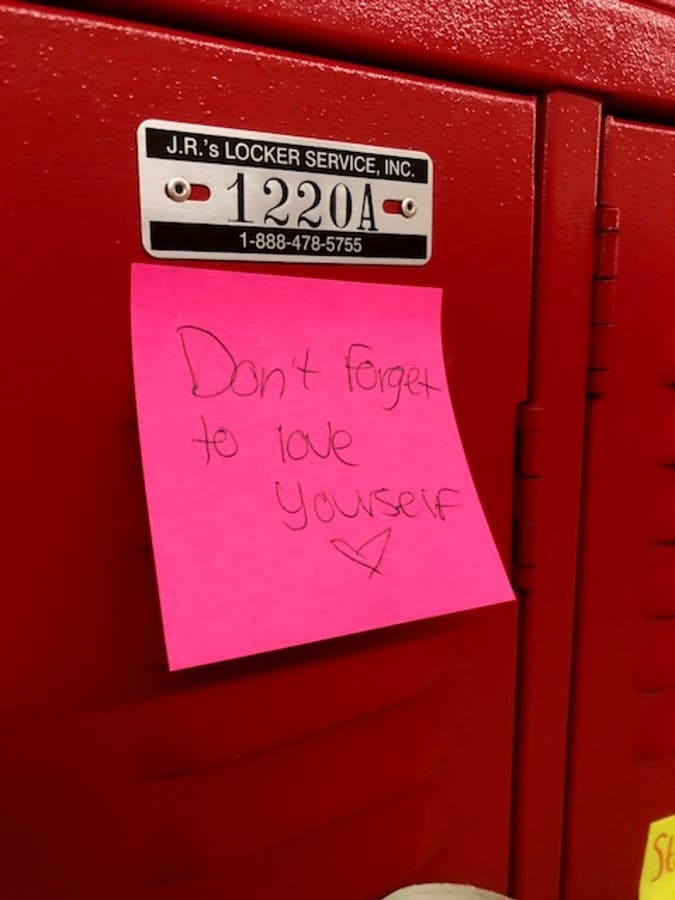 J.R.'s LOCKER SERVICE, INC.
1220A
1-888-478-5755
Don't forget
to love
yourself